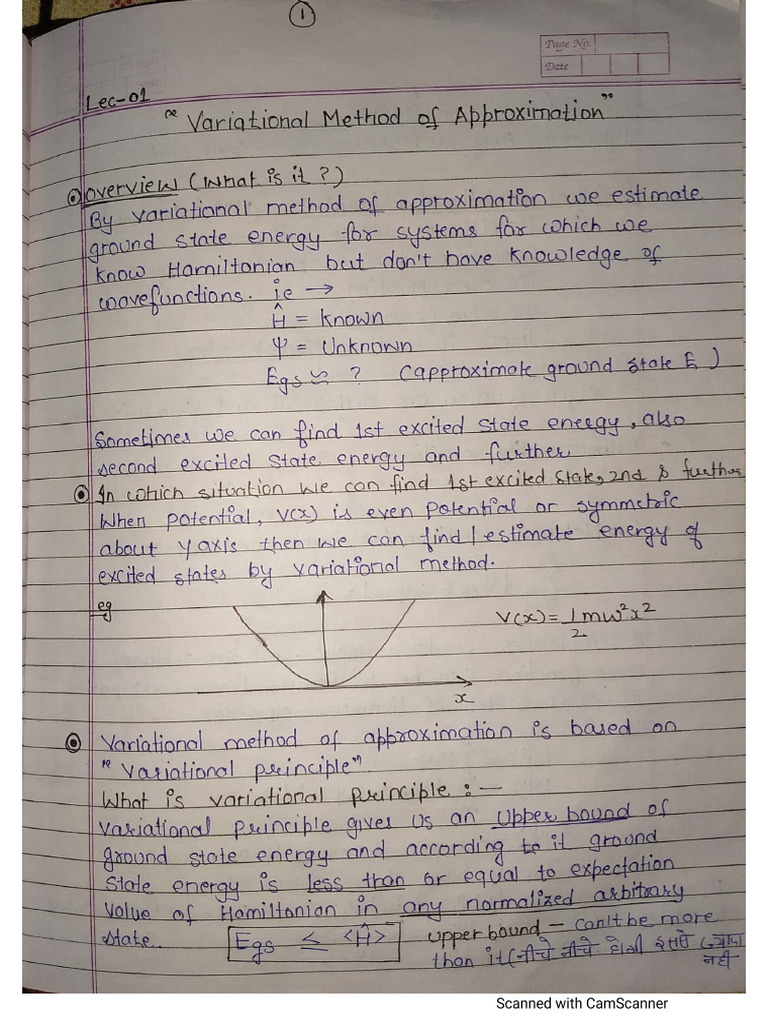 1
Page No.
Date
Lec-01
"Variational Method of Approximation"
overview (What is it?)
By variational method of approximation we estimate
ground state energy for systems for which we
know Hamiltonian but don't have knowledge of
wavefunctions. ie →
Ĥ = Known
Ψ = Unknown
Egs ≃ ? (approximate ground state E)
Sometimes we can find 1st excited state energy, also
second excited state energy and further
In which situation we can find 1st excited state, 2nd & further
When potential, V(x) is even potential or symmetric
about Y axis then we can find/estimate energy of
excited states by variational method.
eg
V(x) = 1/2 mω²x²
x
Variational method of approximation is based on
"Variational principle"
What is variational principle :—
Variational principle gives us an Upper bound of
ground state energy and according to it ground
state energy is less than or equal to expectation
value of Hamiltonian in any normalized arbitrary
state. Egs ≤ <Ĥ> upper bound – can't be more
than it (नीचे नीचे होगी इससे ज्यादा
नहीं
Scanned with CamScanner